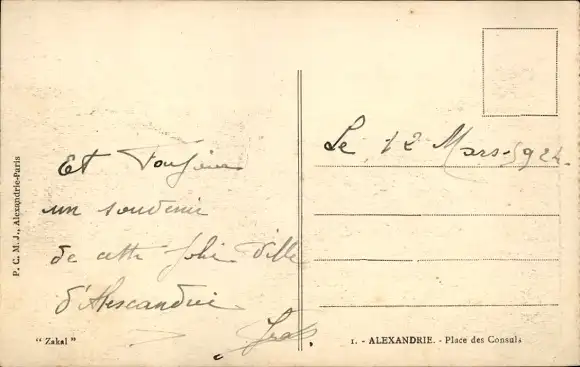 Et Toujours
un souvenir
de cette Jolie Ville
d'Alescandrie
Le 12 Mars 1924.
P. C. M. J., Alexandrie-Paris
"Zakal"
1. - ALEXANDRIE. - Place des Consuls